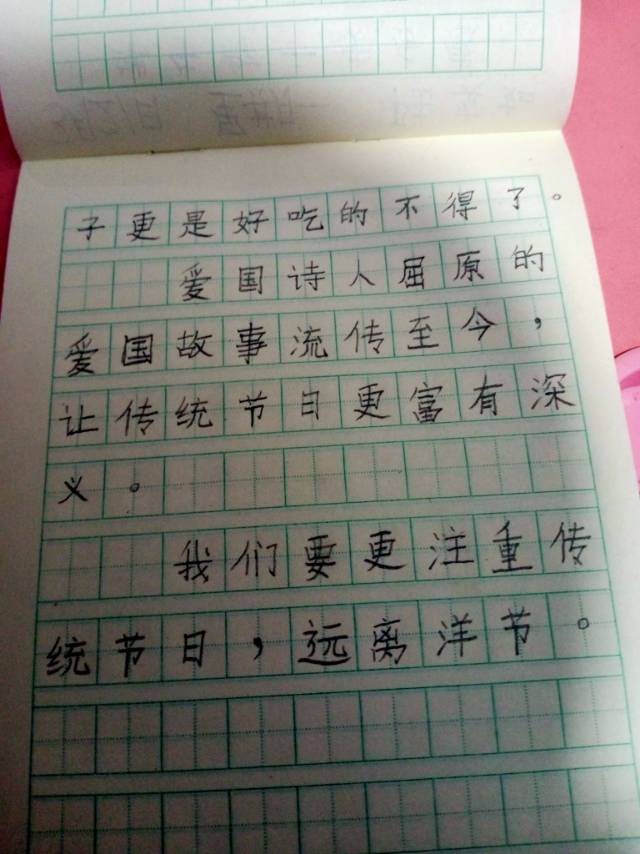 子更是好吃的不得了。
爱国诗人屈原的
爱国故事流传至今，
让传统节日更富有深
义。
我们要更注重传
统节日，远离洋节。